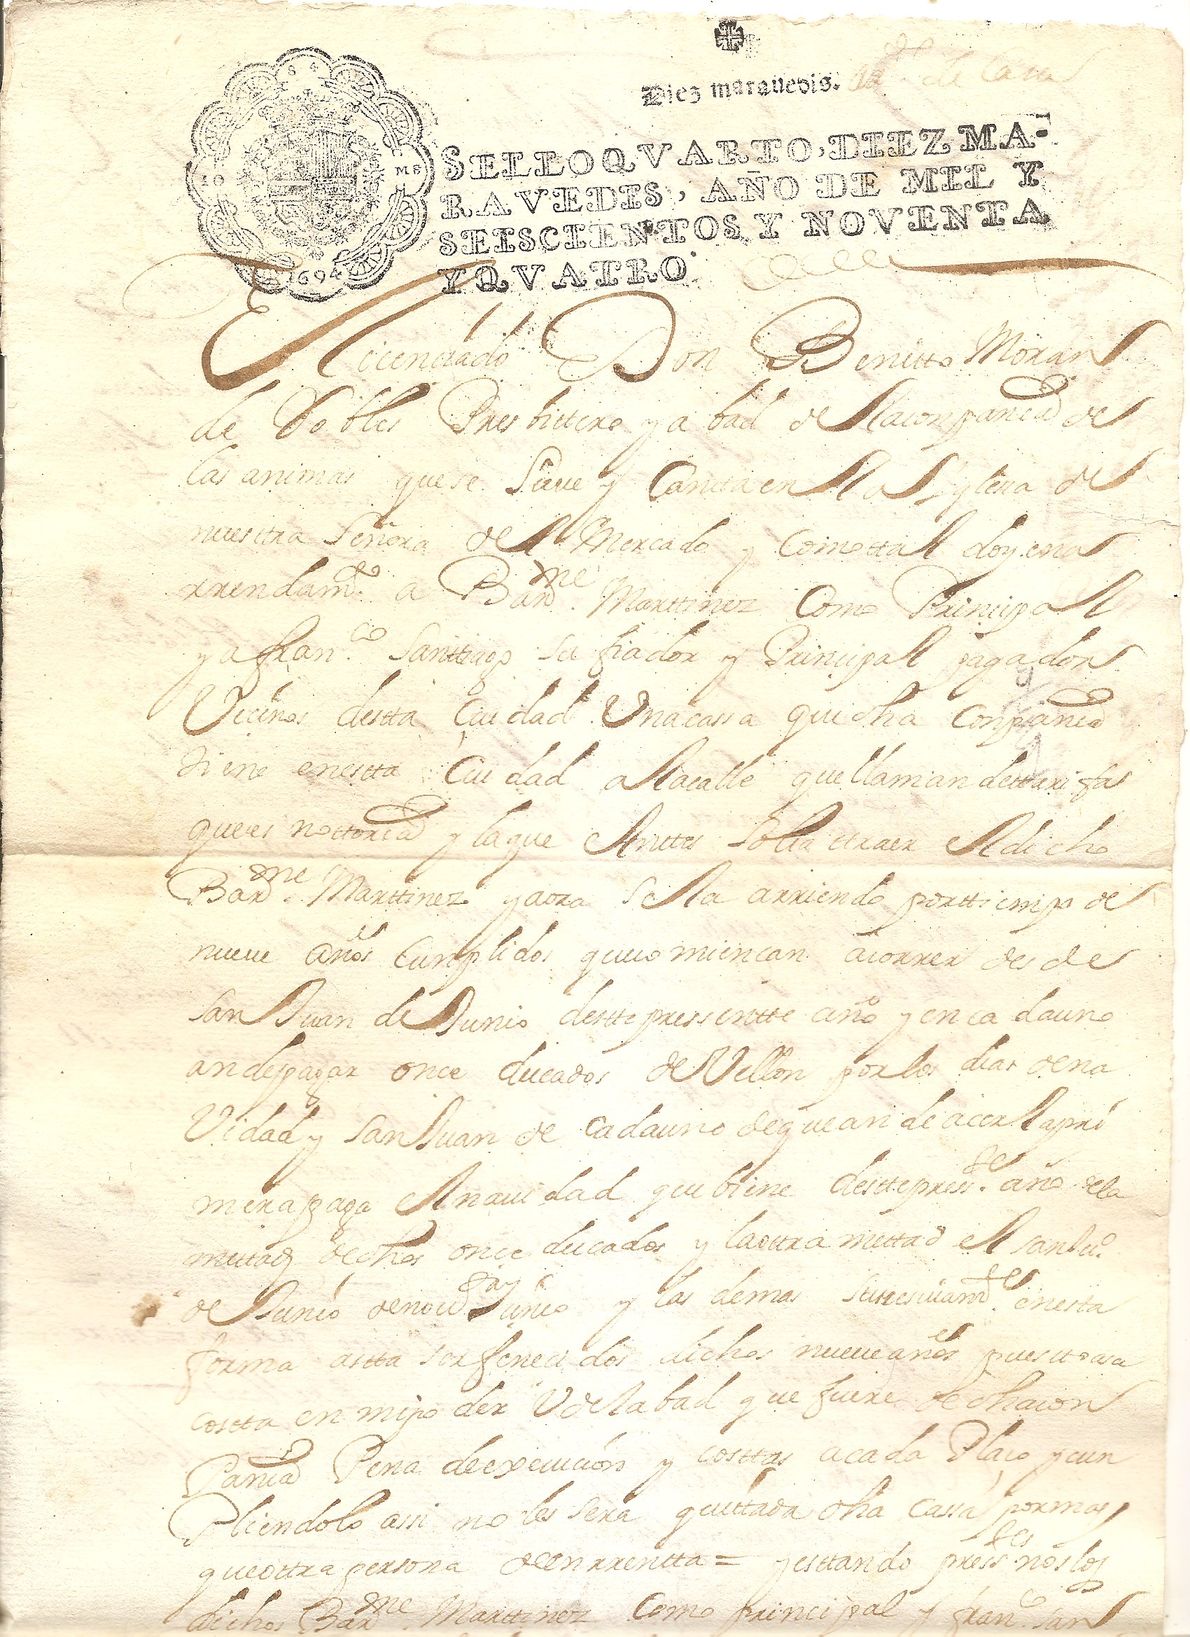 Diez marauedis.
SELLO QVARTO, DIEZ MA-
RAVEDIS, AÑO DE MIL Y
SEISCIENTOS Y NOVENTA
Y QVATRO.
1694
El licenciado Don Benitto Moran
de Robles Presbittero y abad de la conpañia de
las animas que se sirue y Canta en la Yglesia de
nuestra Señora del Mercado y como ttal doy en a
rrendam.to a Bar.me Marttinez Como Principal
y a fran.co Santtiago su fiador y Principal pagador
Vecinos destta Ciudad Una cassa que dha Conpañia
tiene en estta Ciudad a la calle que llaman de
que es nottoria y la que Anttes solia ttraer El dicho
Bar.me Marttinez y aora se la arriendo por ttiempo de
nueve años Cunplidos que comiencan a correr desde
san Juan de Junio deste pressentte año y en cada uno
an de pagar once ducados de Vellon por los dias de na
Vidad y san Juan de cada uno de que an de acer la pri
mera paga El nauidad que biene deste press.te año de la
mittad de dhos once ducados y la ottra mittad El san Ju.o
de Junio de nou.ta y cinco y los demas sucesiuam.te en esta
forma astta ser fenecidos dichos nueue años puestto a sa
costta en mi poder V del abad que fuere de dha con
Pañia Pena de execucion y costtas a cada Placo y cun
Pliendolo assi no les sera quittada dha Cassa por mas
que ottra persona de en rrentta = y esttando press.tes nos los
dichos Bar.me Marttinez Como principal y fran.co san